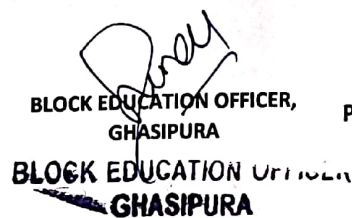 BLOCK EDUCATION OFFICER,
GHASIPURA
P
BLOCK EDUCATION OFFICER
GHASIPURA